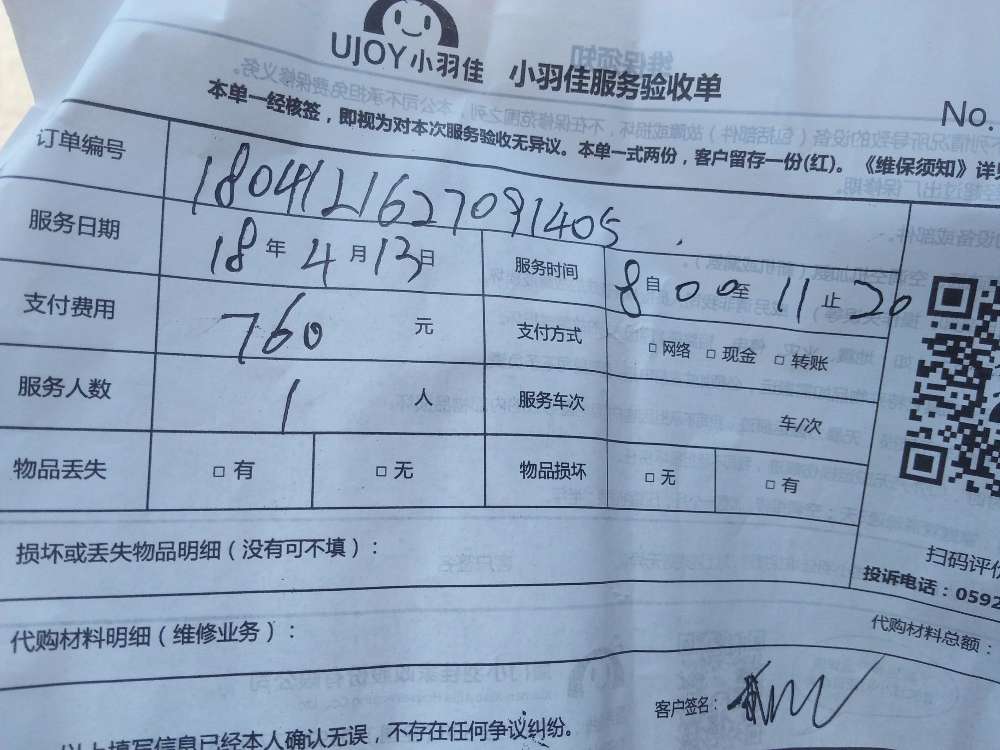 UJOY小羽佳 小羽佳服务验收单
No.
本单一经核签，即视为对本次服务验收无异议。本单一式两份，客户留存一份(红)。《维保须知》详见
订单编号 1804121627091405
服务日期 18年4月13日 服务时间 8自00至11止20
支付费用 760元 支付方式 □网络 □现金 □转账
服务人数 1人 服务车次 车/次
物品丢失 □有 □无 物品损坏 □无 □有
损坏或丢失物品明细（没有可不填）：
扫码评价
投诉电话：0592
代购材料明细（维修业务）：
代购材料总额：
客户签名：
以上填写信息已经本人确认无误，不存在任何争议纠纷。